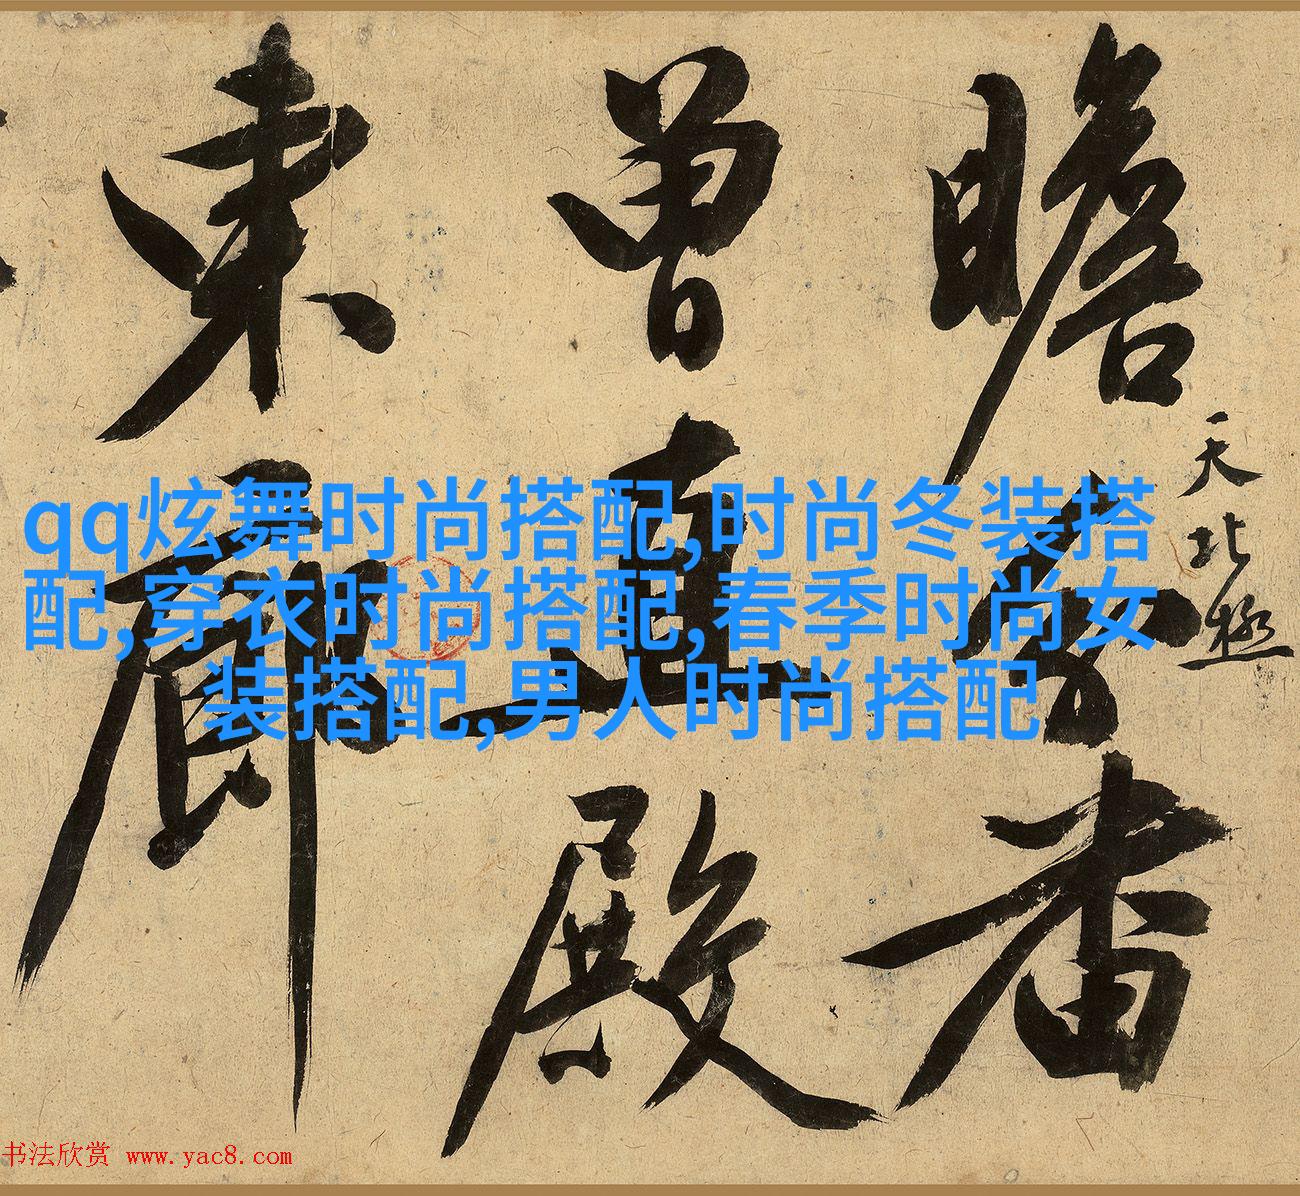 瞻
者
天北極
曾直殿
東廊
qq炫舞时尚搭配,时尚冬装搭
配,穿衣时尚搭配,春季时尚女
装搭配,男人时尚搭配
书法欣赏 www.yac8.com